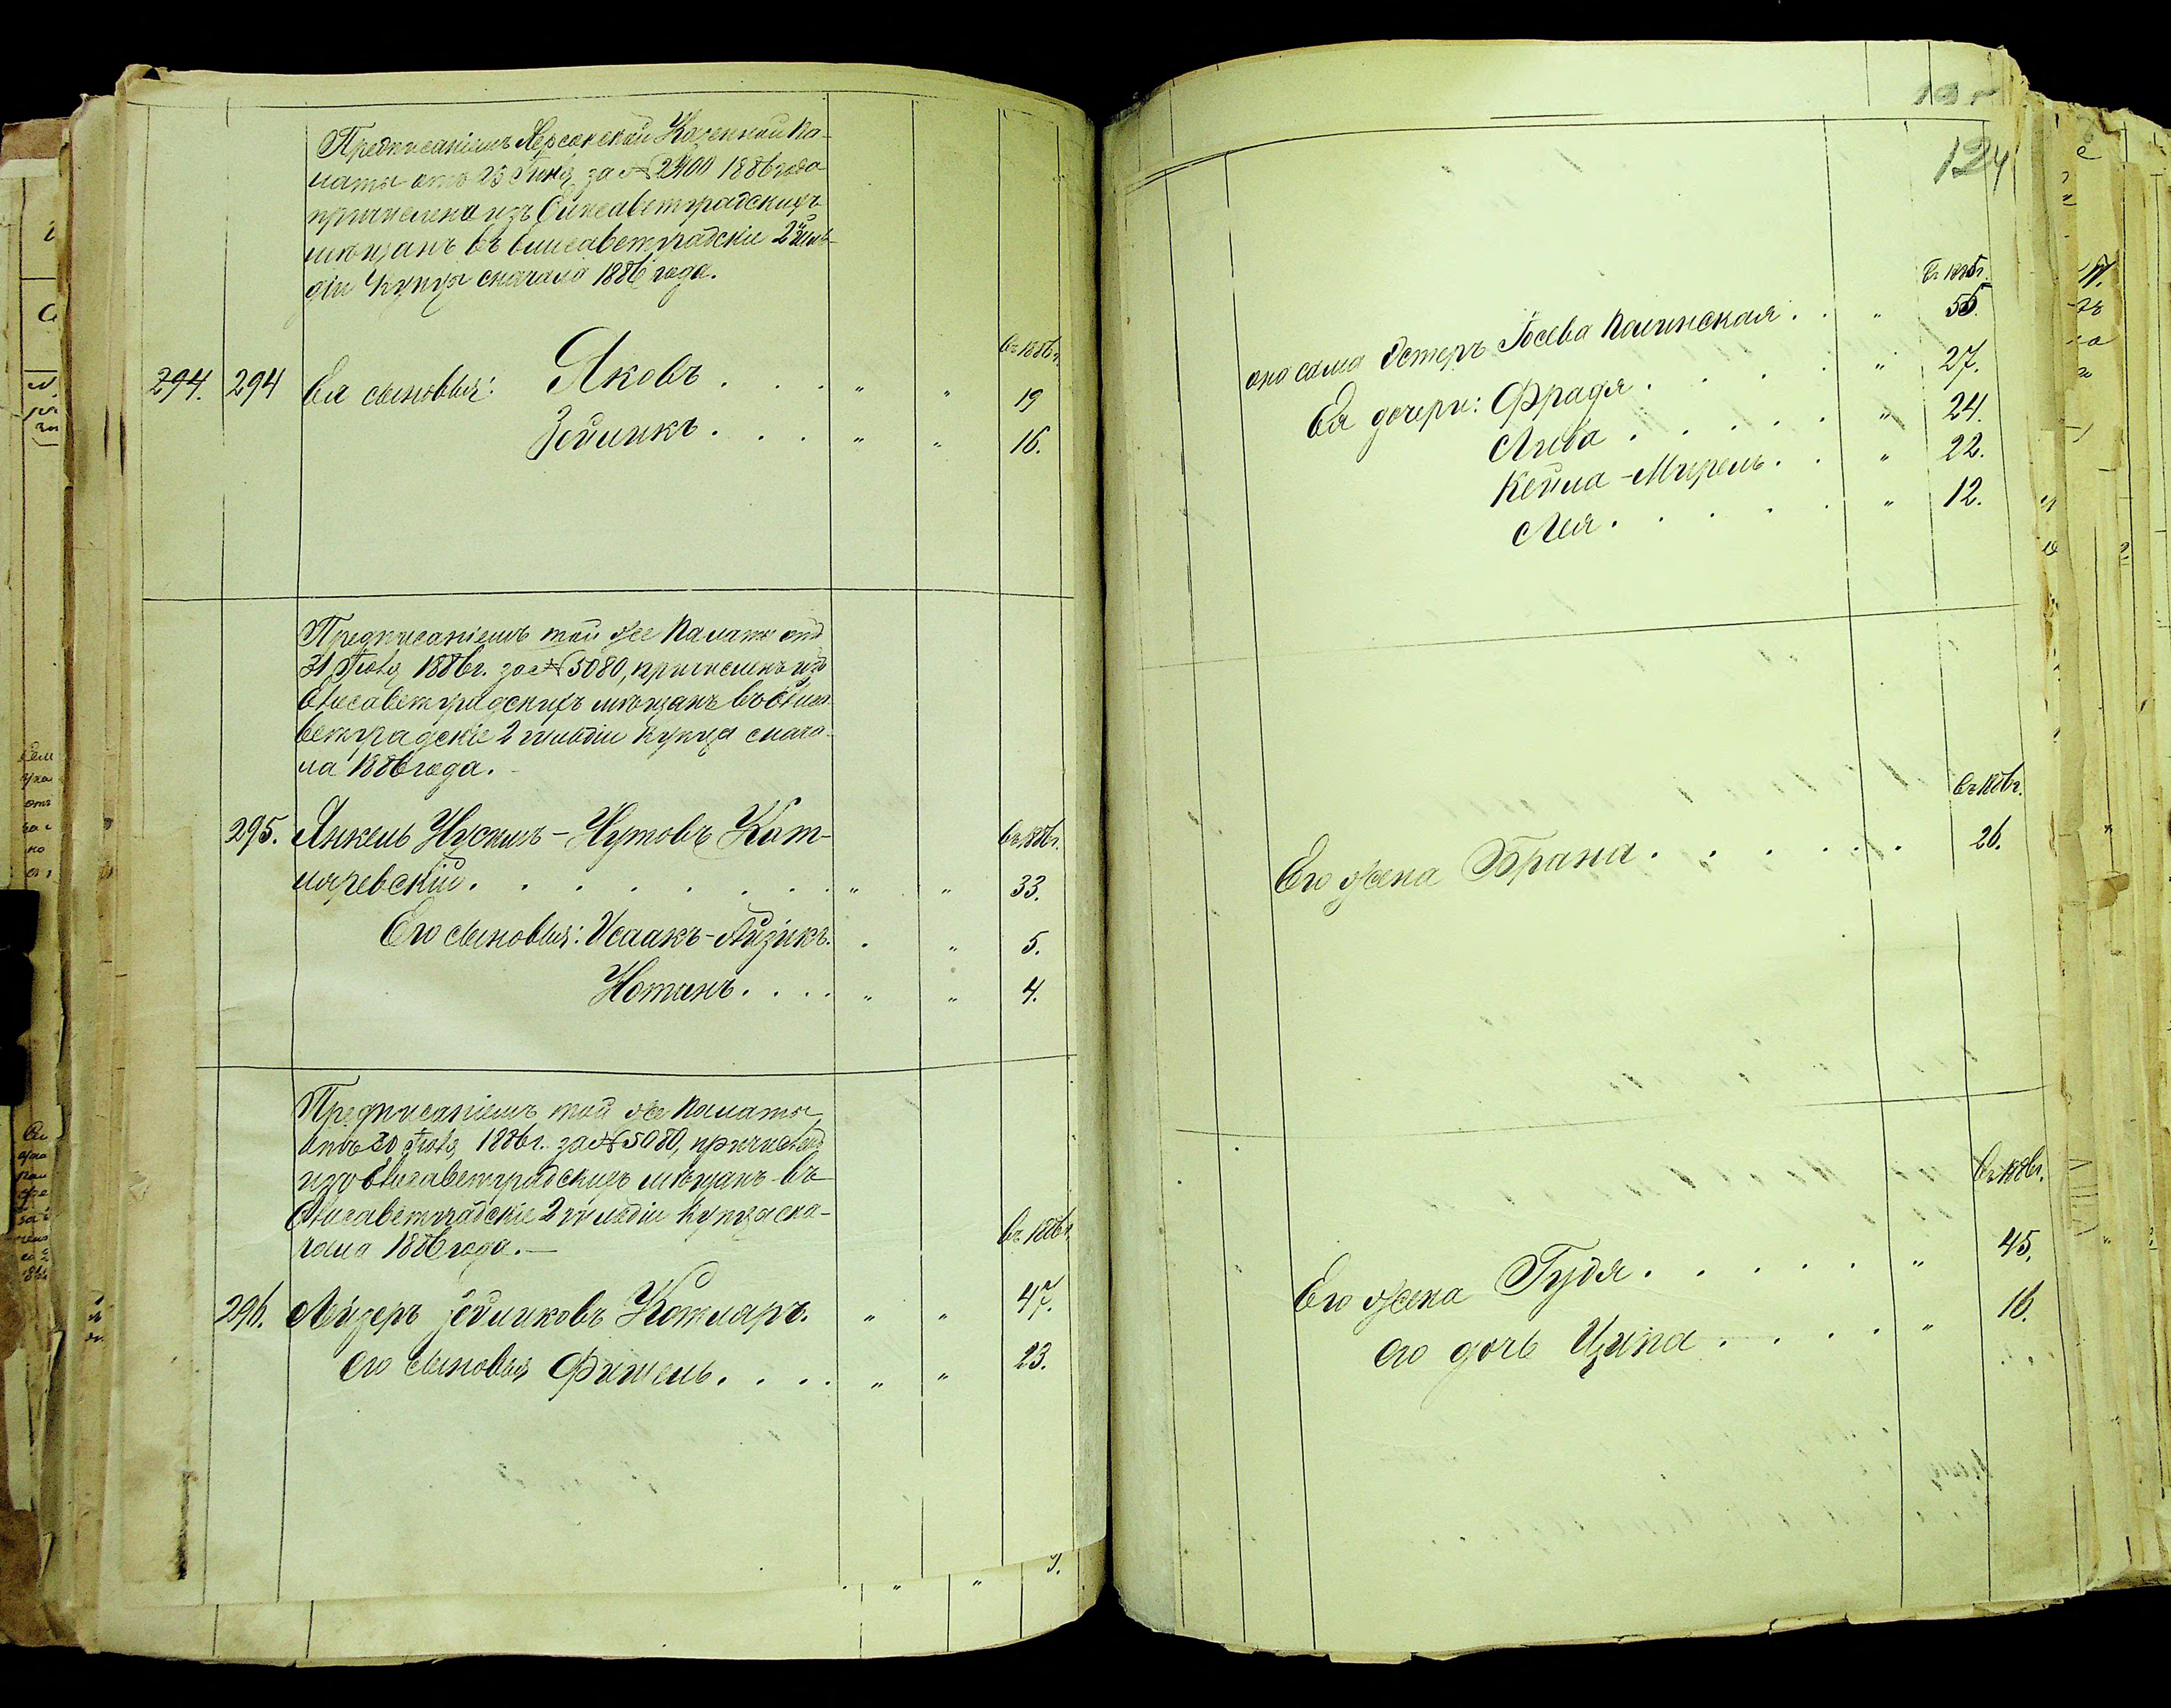 Предписаніемъ Херсонской Казенной Па-
латы отъ 23 Іюня за № 2400 1886 года
причислена изъ Елисаветградскихъ
мѣщанъ въ Елисаветградскіе 2й Гиль-
діи Купцы сначала 1886 года.
въ 1886 г.
294. 294 Ея сыновья: Яковъ . . . " " 19
Зейликъ . . . " " 16.
Предписаніемъ той же Палаты отъ
31 Іюля 1886 г. за № 5080, причисленъ изъ
Елисаветградскихъ мѣщанъ въ Елиса-
ветградскіе 2 гильдіи Купца снача-
ла 1886 года.
295. Янкель Нусимъ-Нутовъ Кот- въ 1886 г.
ляревскій . . . . . . . " " 33.
Его сыновья: Исаакъ-Айзикъ. . " 5.
Нотанъ . . . . " " 4.
Предписаніемъ той же Палаты
отъ Іюля 1886 г. за № 5080, причисленъ
изъ Елисаветградскихъ мѣщанъ въ
Елисаветградскіе 2 гильдіи Купца сна-
чала 1886 года. — въ 1886 г.
296. Лейзеръ Зейликовъ Котляръ. " " 47.
Его сыновья Фишель . . . . " " 23.
124
въ г.
она сама Эстеръ Іосева Полинская . . " 50.
Ея дочери: Фрадя . . . . . " 27.
Либа . . . . . " 24.
Кейла-Мирель . . " 22.
Лея . . . . . " 12.
въ 1886 г.
Его жена Брана . . . . . . 26.
въ 1886 г.
Его жена Гудя . . . . . " 45.
Его дочь Ципа . . . . " 16.